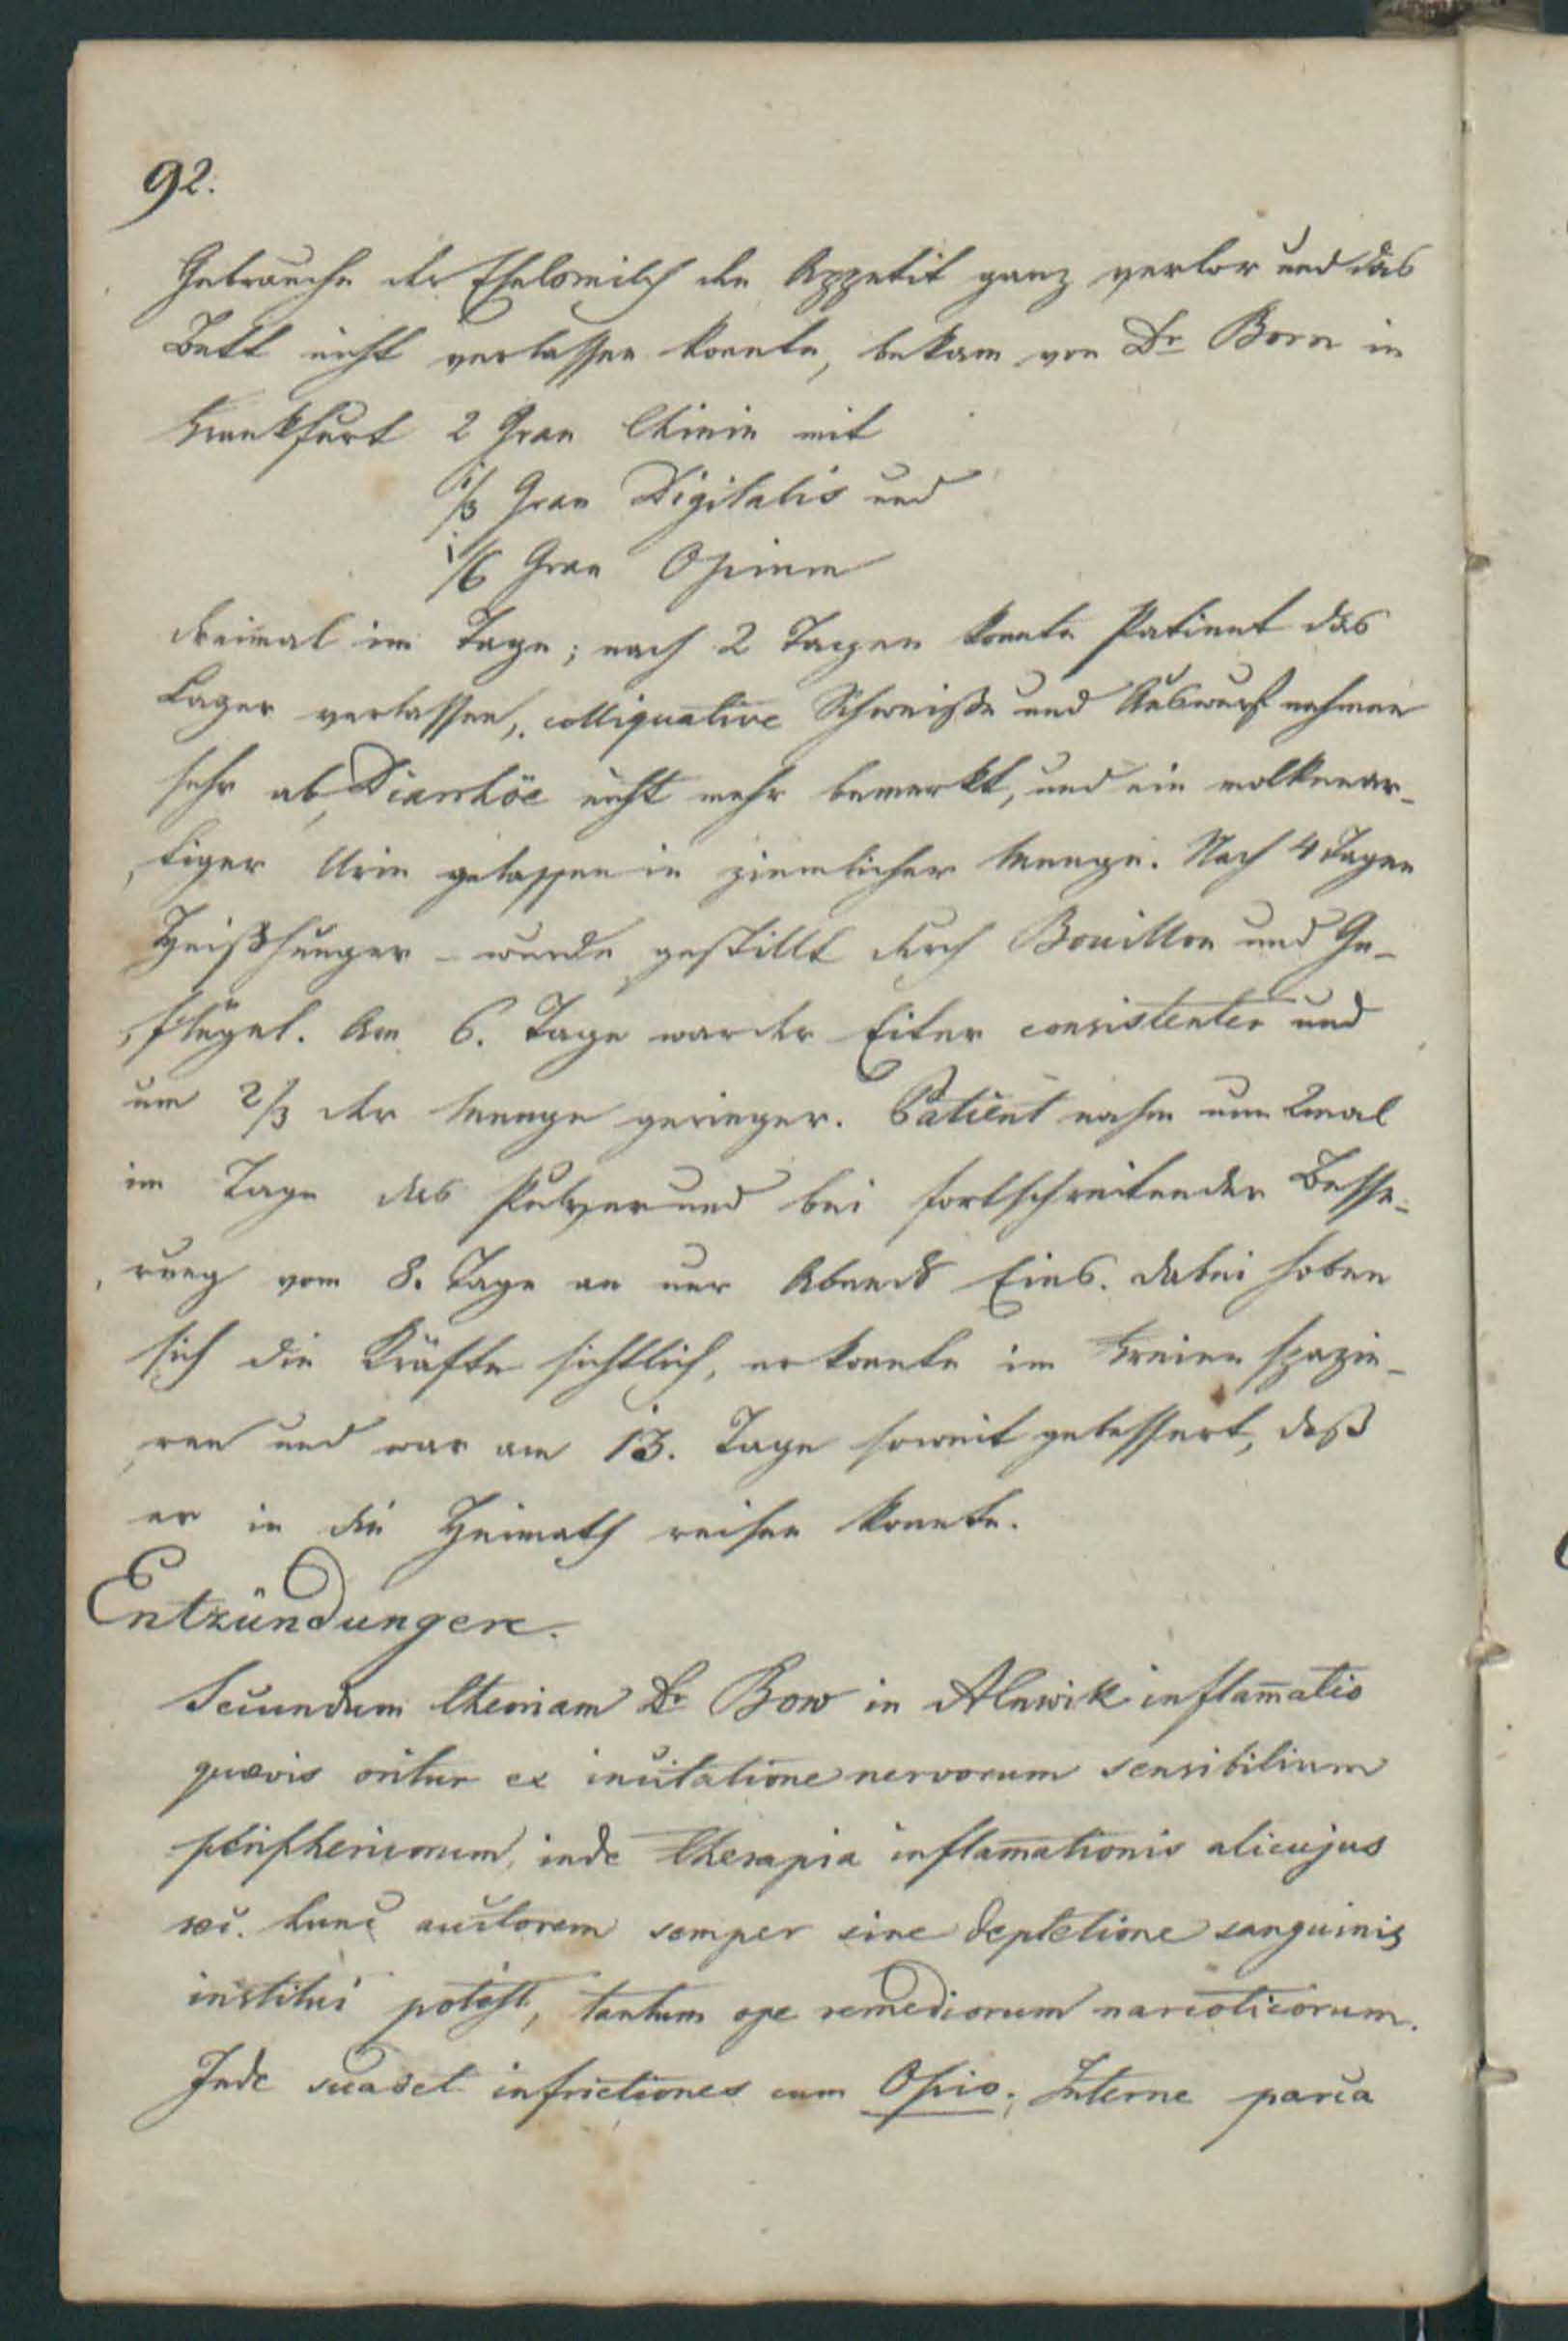 92.
Gebrauche der Eselsmilch den Appetit ganz verlor und das
Bett nicht verlassen konnte, bekam von Dr Born in
Frankfurt 2 Gran Chinin mit
1/3 Gran Digitalis und
1/6 Gran Opium
dreimal im Tage; nach 2 Tagen konnte Patient das
Lager verlassen, colliquative Schweiße und Auswurf nahmen
sehr ab, Diarrhöe nicht mehr bemerkt, und ein molkenar-
tiger Urin gelassen in ziemlicher Menge. Nach 4 Tagen
Heißhunger - wurde gestillt durch Bouillon und Ge-
flügel. Am 6. Tage war der Eiter consistenter und
um 2/3 der Menge geringer. Patient nahm nun 2mal
im Tage das Pulver und bei fortschreitender Besse-
rung vom 8. Tage an nur Abends Eins. dabei hoben
sich die Kräfte sichtlich, er konnte im Freien spazie-
ren und war am 13. Tage soweit gebessert, daß
er in die Heimath reisen konnte.
Entzündungen.
Secundum theoriam Dr Bow in Alnwik inflam̄atio
quævis oritur ex incitatione nervorum sensibilium
periphericorum, inde therapia inflam̄ationis alicujus
sec. hunc auctorem semper sine depletione sanguinis
institui potest, tantum ope remediorum narcoticorum.
Inde suadet infrictiones cum Opio; Interne parca